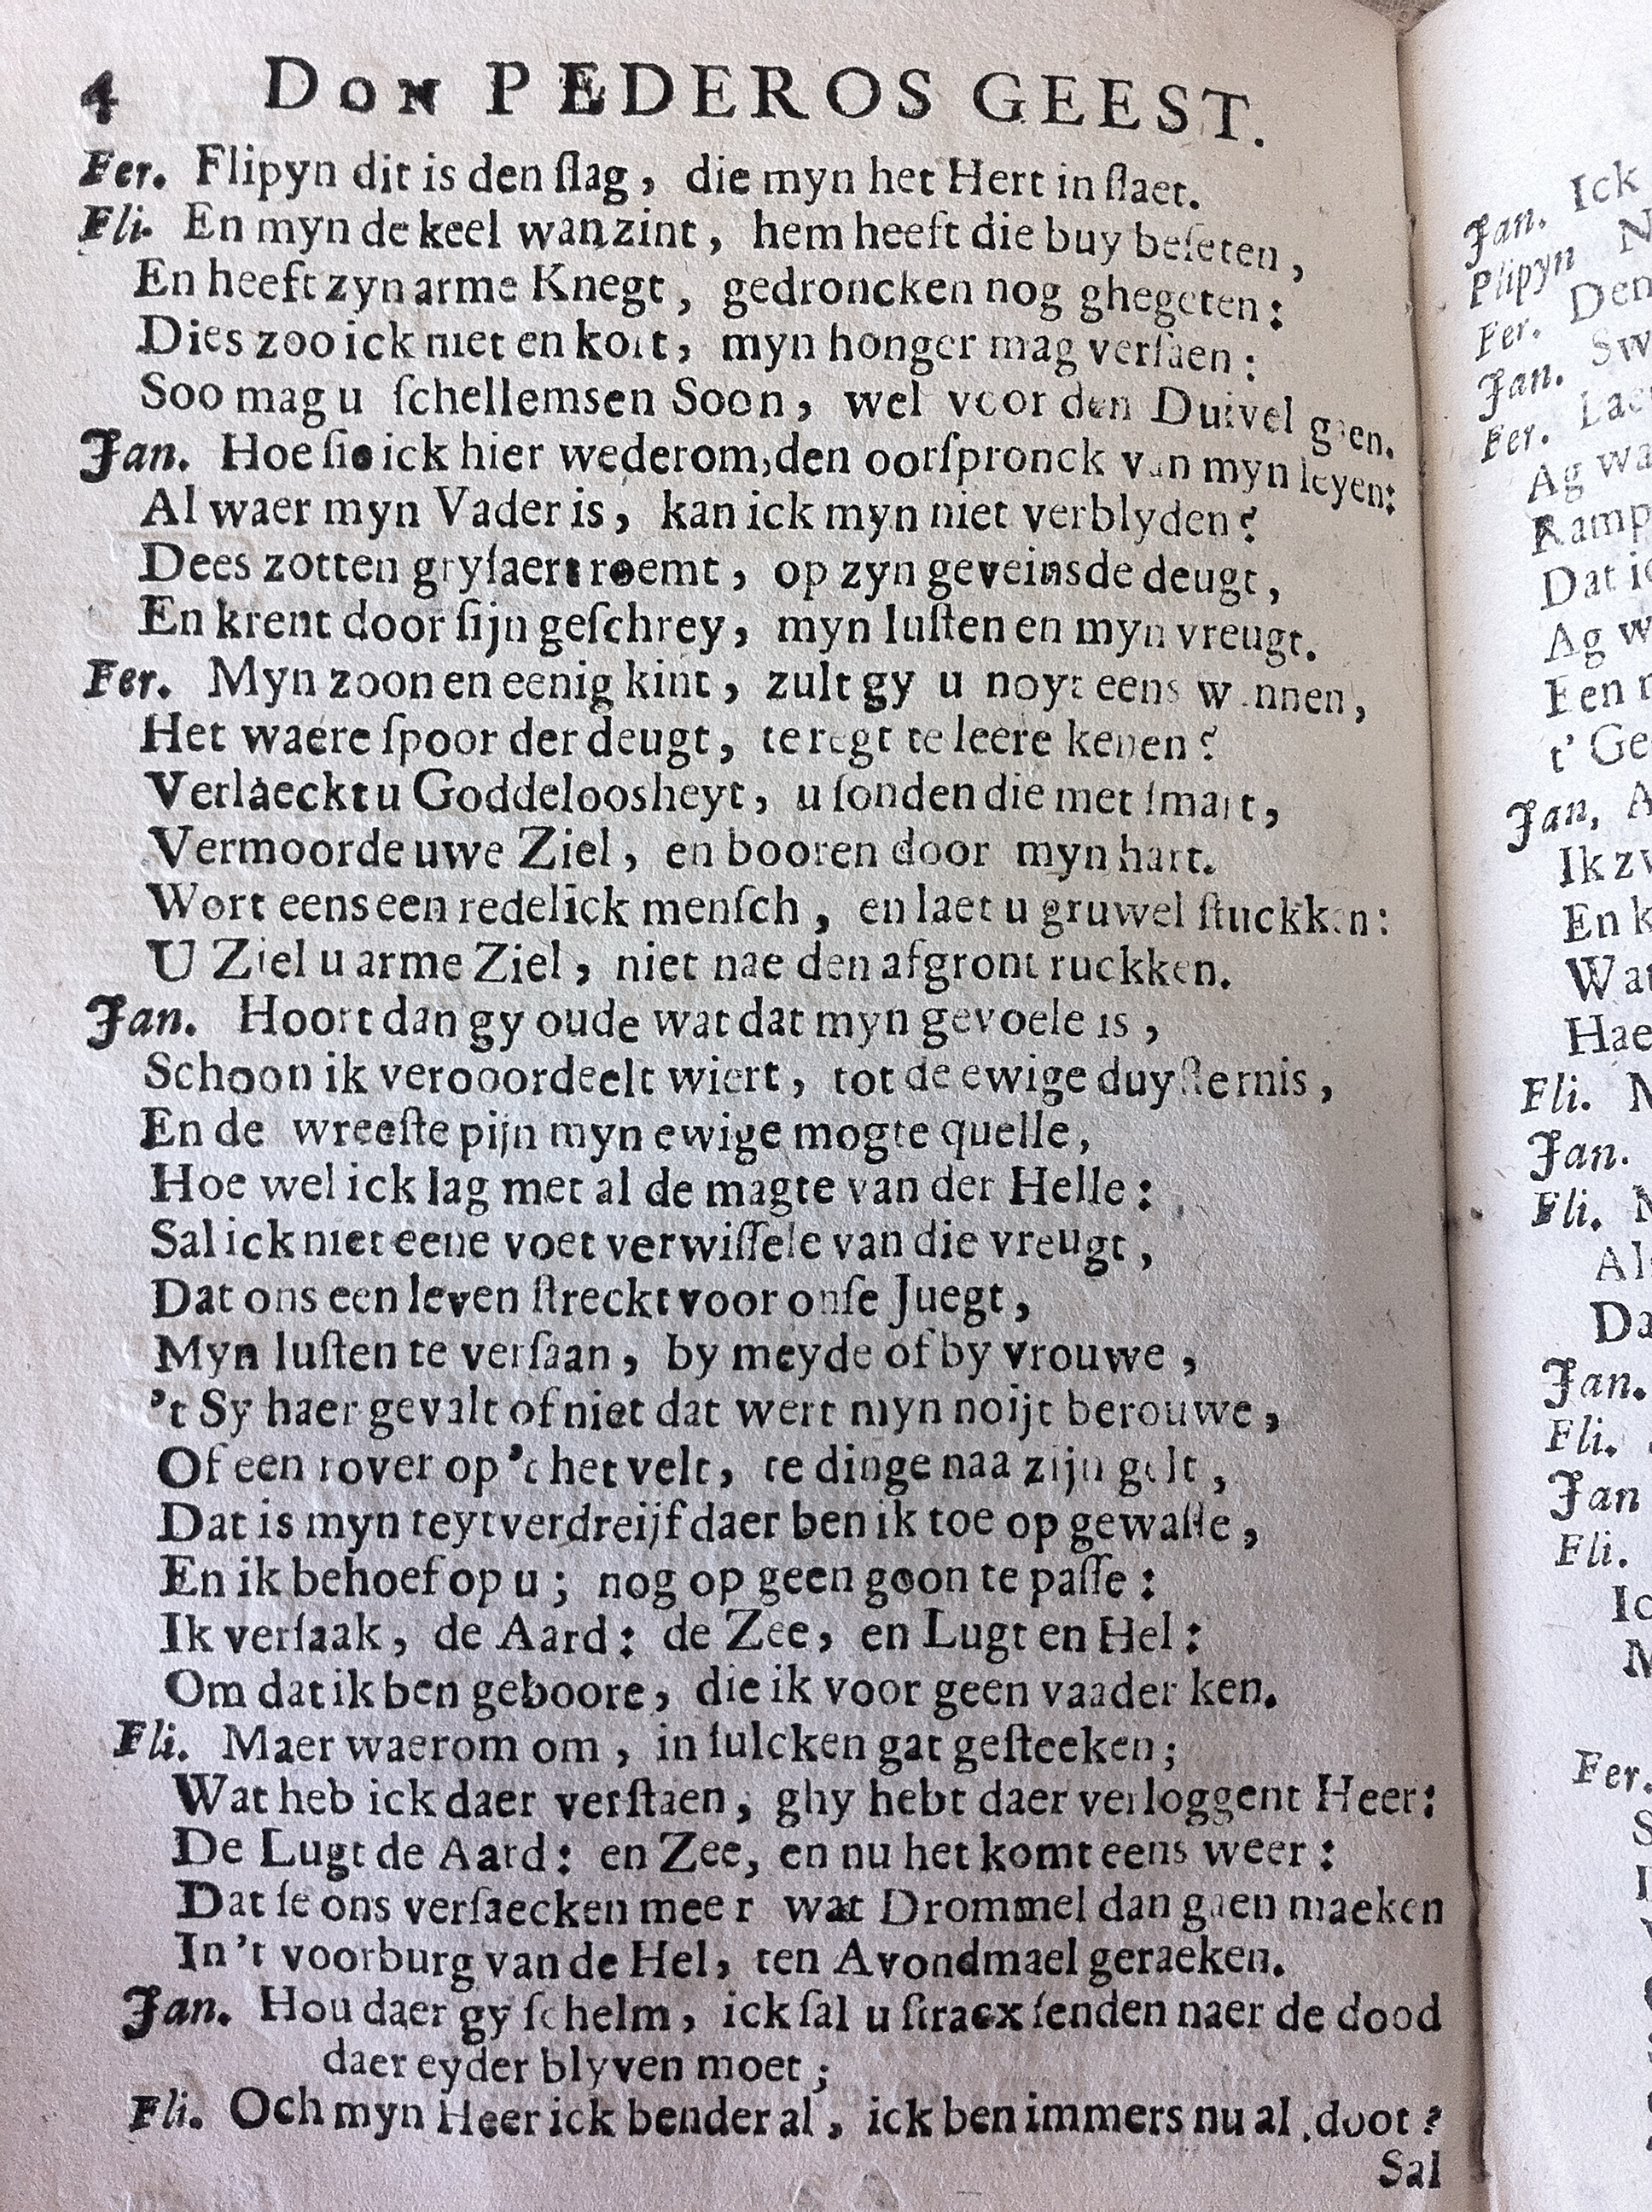 4 DON PEDEROS GEEST.
Fer. Flipyn dit is den ſlag, die myn het Hert in ſlaet.
Fli. En myn de keel wanzint, hem heeft die buy beſeten,
En heeft zyn arme Knegt, gedroncken nog ghegeten:
Dies zoo ick niet en kort, myn honger mag verſaen:
Soo mag u ſchellemsen Soon, wel voor den Duivel gaen.
Jan. Hoe ſie ick hier wederom, den oorſpronck van myn leyen:
Al waer myn Vader is, kan ick myn niet verblyden?
Dees zotten gryſaert roemt, op zyn geveinsde deugt,
En krent door ſijn geſchrey, myn luſten en myn vreugt.
Fer. Myn zoon en eenig kint, zult gy u noyt eens wennen,
Het waere ſpoor der deugt, te regt te leere kenen?
Verlaeckt u Goddeloosheyt, u ſonden die met ſmart,
Vermoorde uwe Ziel, en booren door myn hart.
Wort eens een redelick menſch, en laet u gruwel ſtuckken:
U Ziel u arme Ziel, niet nae den afgront ruckken.
Jan. Hoort dan gy oude wat dat myn gevoele is,
Schoon ik verooordeelt wiert, tot de ewige duyſternis,
En de wreeſte pijn myn ewige mogte quelle,
Hoe wel ick lag met al de magte van der Helle:
Sal ick niet eene voet verwiſſele van die vreugt,
Dat ons een leven ſtreckt voor onſe Juegt,
Myn luſten te verſaan, by meyde of by vrouwe,
't Sy haer gevalt of niet dat wert myn noijt berouwe,
Of een rover op 't het velt, te dinge naa zijn gelt,
Dat is myn teyt verdreijf daer ben ik toe op gewaſſe,
En ik behoef op u; nog op geen goon te paſſe:
Ik verſaak, de Aard: de Zee, en Lugt en Hel:
Om dat ik ben geboore, die ik voor geen vaader ken.
Fli. Maer waerom om, in ſulcken gat geſteeken;
Wat heb ick daer verſtaen, ghy hebt daer verloggent Heer:
De Lugt de Aard: en Zee, en nu het komt eens weer:
Dat ſe ons verſaecken meer wat Drommel dan gaen maeken
In 't voorburg van de Hel, ten Avondmael geraeken.
Jan. Hou daer gy ſchelm, ick ſal u ſtraex ſenden naer de dood
daer eyder blyven moet;
Fli. Och myn Heer ick bender al, ick ben immers nu al doot?
Sal
Jan. Ick
Plipyn N
Fer. Den
Jan. Sw
Fer. Lae
Ag wa
Ramp
Dat ic
Ag w
Een
t' Ge
Jan, A
Ik zv
En k
Wat
Hae
Fli.
Jan.
Fli.
Al
Da
Jan.
Fli.
Jan
Fli.
Ic
Fer.